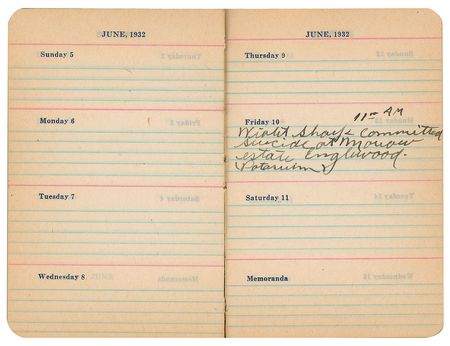 JUNE, 1932
Sunday 5
Monday 6
Tuesday 7
Wednesday 8
JUNE, 1932
Thursday 9
Friday 10 11 AM
Violet Sharpe Committed
Suicide at Morrow
estate Englewood.
(Potassium)
Saturday 11
Memoranda